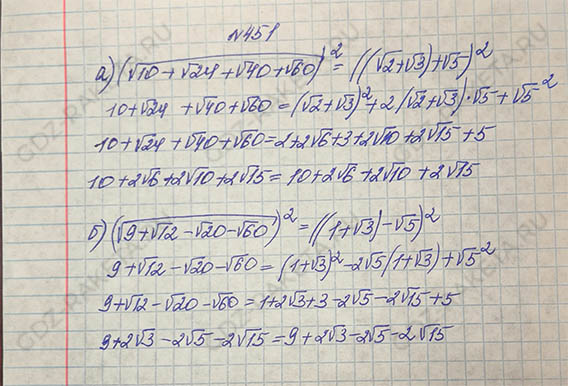 №451
а) (√(10+√24+√40+√60))² = ((√2+√3)+√5)²
10+√24 +√40+√60 = (√2+√3)²+2(√2+√3)·√5+√5²
10+√24+√40+√60=2+2√6+3+2√10+2√15+5
10+2√6+2√10+2√15 = 10+2√6+2√10+2√15
б) (√(9+√12-√20-√60))² = ((1+√3)-√5)²
9+√12-√20-√60 = (1+√3)²-2√5(1+√3)+√5²
9+√12-√20-√60=1+2√3+3-2√5-2√15+5
9+2√3-2√5-2√15=9+2√3-2√5-2√15
GDZ-RAKETA.RU